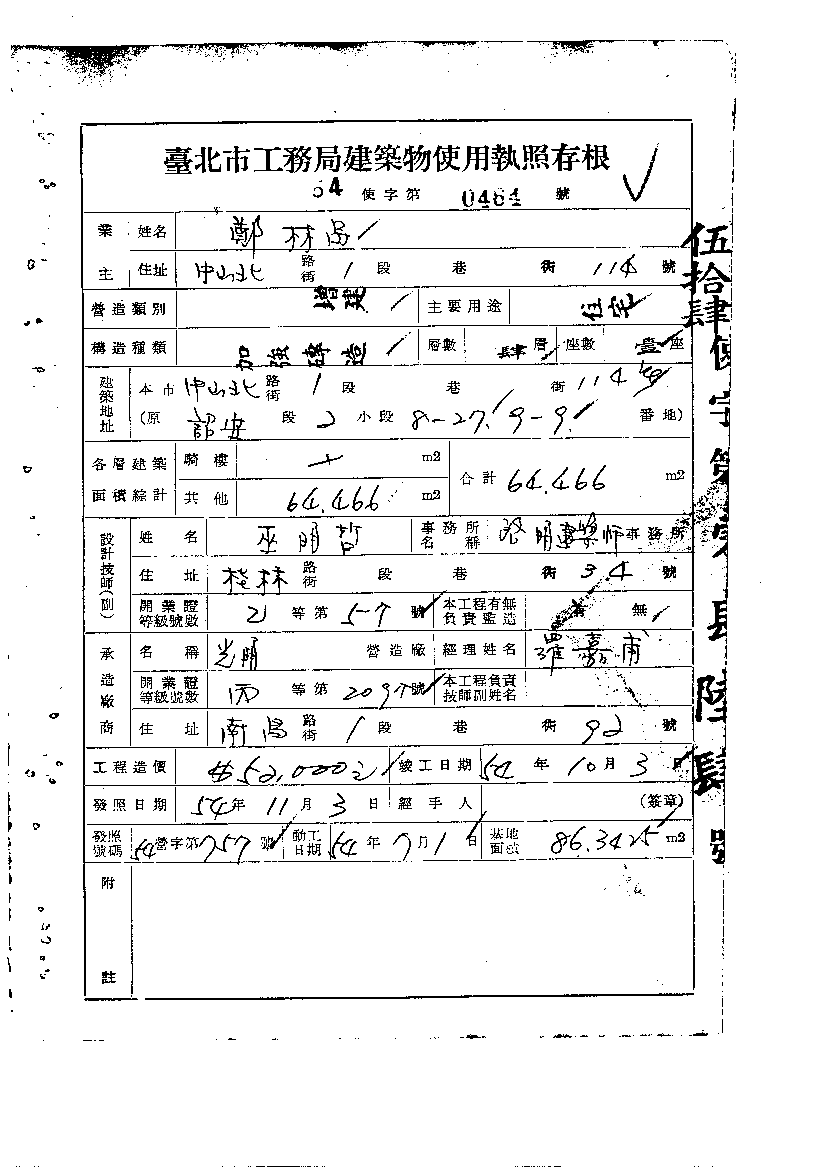 臺北市工務局建築物使用執照存根
54 使字第 0464 號
業主 姓名 鄭林昌
住址 中山北 路街 1 段 巷 街 114 號
營造類別 增建 主要用途 住宅
構造種類 加強磚造 層數 肆 層 座數 壹 座
建築地址 本市 中山北 路街 1 段 巷 街 114 號
(原 段 2 小段 8-27. 9-9. 番地)
各層建築面積綜計 騎樓 m2 合計 64.466 m2
其他 64.466 m2
設計技師(副) 姓名 巫明哲 事務所名稱 啓明建築師事務所
住址 桂林 路街 段 巷 街 34 號
開業證等級號數 等第 57 號 本工程有無負責監造 無
承造廠商 名稱 光明 營造廠 經理姓名 羅嘉甫
開業證等級號數 丙 等第 號 本工程負責技師副姓名
住址 南昌 路街 1 段 巷 街 92 號
工程造價 $52,000元 竣工日期 54 年 10 月 3 日
發照日期 54 年 11 月 3 日 經手人 (簽章)
發照號碼 54 營字第 757 號 動工日期 54 年 7 月 1 日 基地面積 86.3425 m2
附註
伍拾肆使字第零肆陸肆號